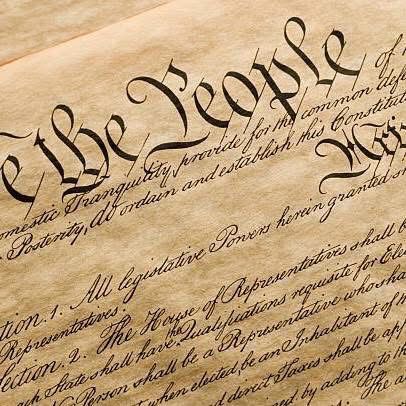 e the People of
omestic Tranquility, provide for the common defe
Posterity, do ordain and establish this Constitut
Arti
tion. 1. All legislative Powers herein granted s
Representatives.
ection. 2. The House of Representatives shall b
ach State shall have the Qualifications requisite for Ele
No Person shall be a Representative who sha
t when elected be an Inhabitant of
d direct Taxes shall be ap
ed by adding to th